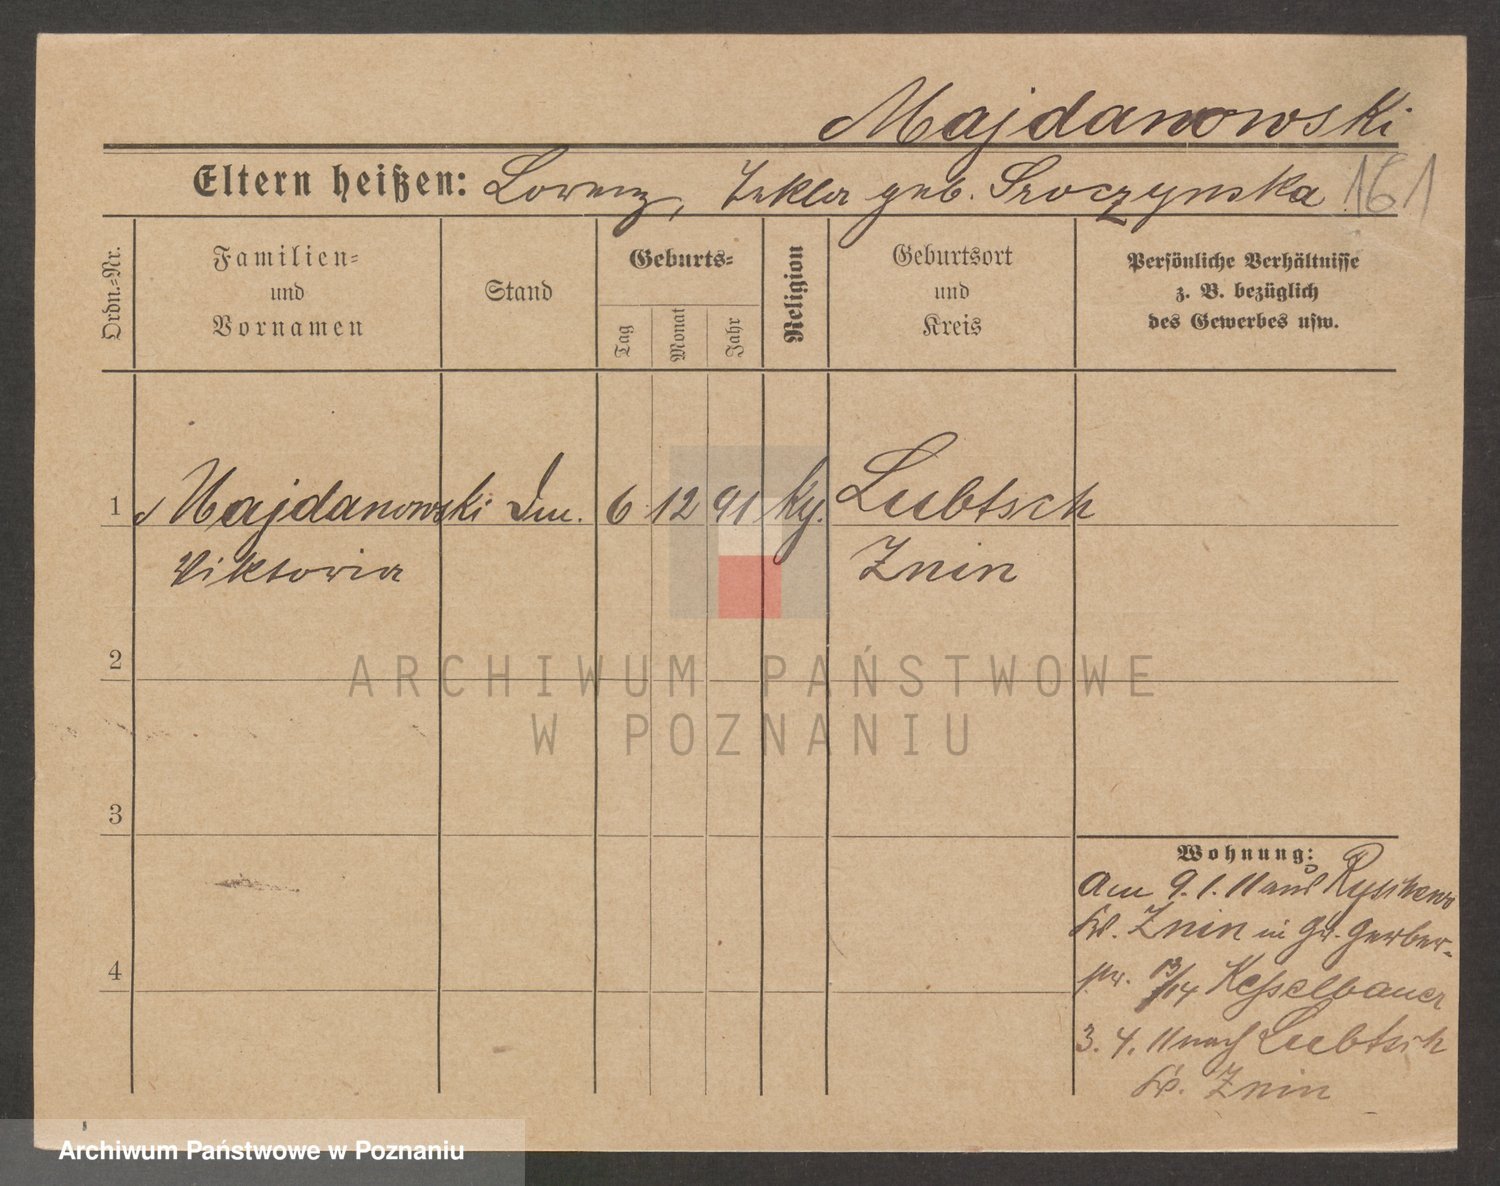 Majdanowski
Eltern heißen: Lorenz, Tekla geb. Sroczynska 161
Ordn.=Nr.
Familien=
und
Vornamen
Stand
Geburts=
Tag
Monat
Jahr
Religion
Geburtsort
und
Kreis
Persönliche Verhältnisse
z. B. bezüglich
des Gewerbes usw.
1 Majdanowski 6 12 91 Lubtsch
Viktoria Znin
2
3
4
Wohnung:
Am 9.1.11 aus
Kr. Znin in Gr. Gerber-
str. 13/14 Kesselbauer
3.4.11 nach Lubtsch
Kr. Znin
ARCHIWUM PAŃSTWOWE
W POZNANIU
Archiwum Państwowe w Poznaniu